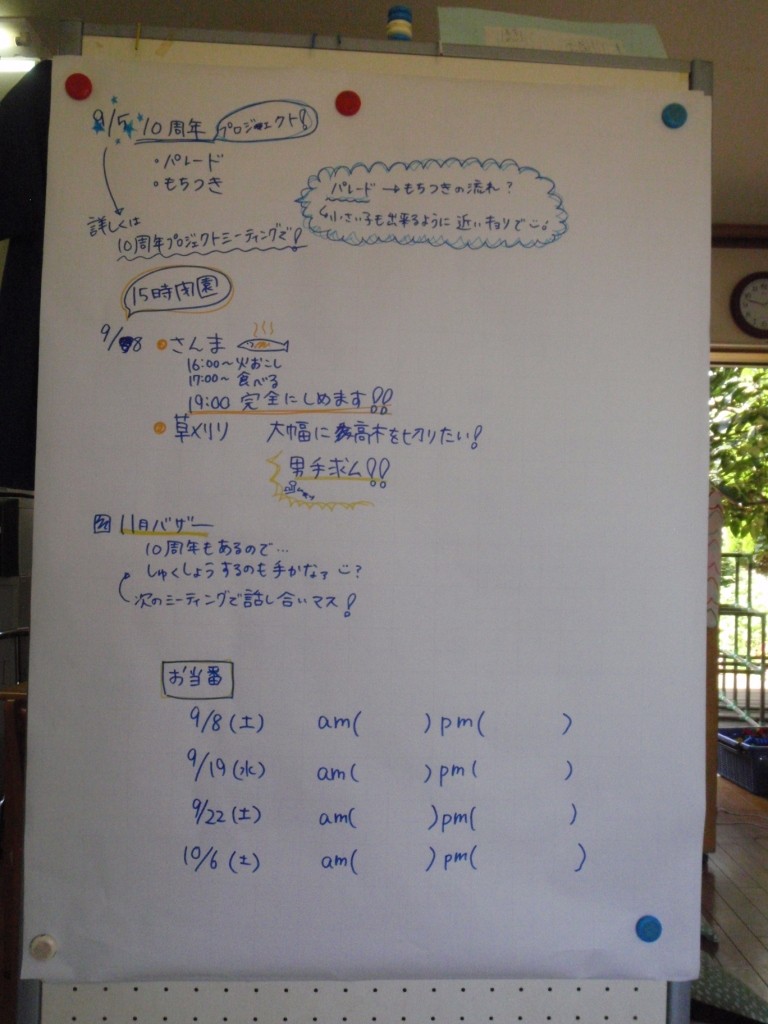 9/5 10周年 プロジェクト!
・パレード
・もちつき
パレード →もちつきの流れ?
小さい子も出来るように 近いキョリで
詳しくは
10周年プロジェクトミーティングで!
15時閉園
9/8 ・さんま
16:00〜火おこし
17:00〜 食べる
19:00 完全にしめます!!
・草刈り 大幅に高木を切りたい!
男手求ム!!
11月バザー
10周年もあるので…
しゅくしょうするのも手かなァ ?
次のミーティングで話し合いマス!
お当番
9/8 (土) am( ) pm( )
9/19 (水) am( ) pm( )
9/22 (土) am( ) pm( )
10/6 (土) am( ) pm( )